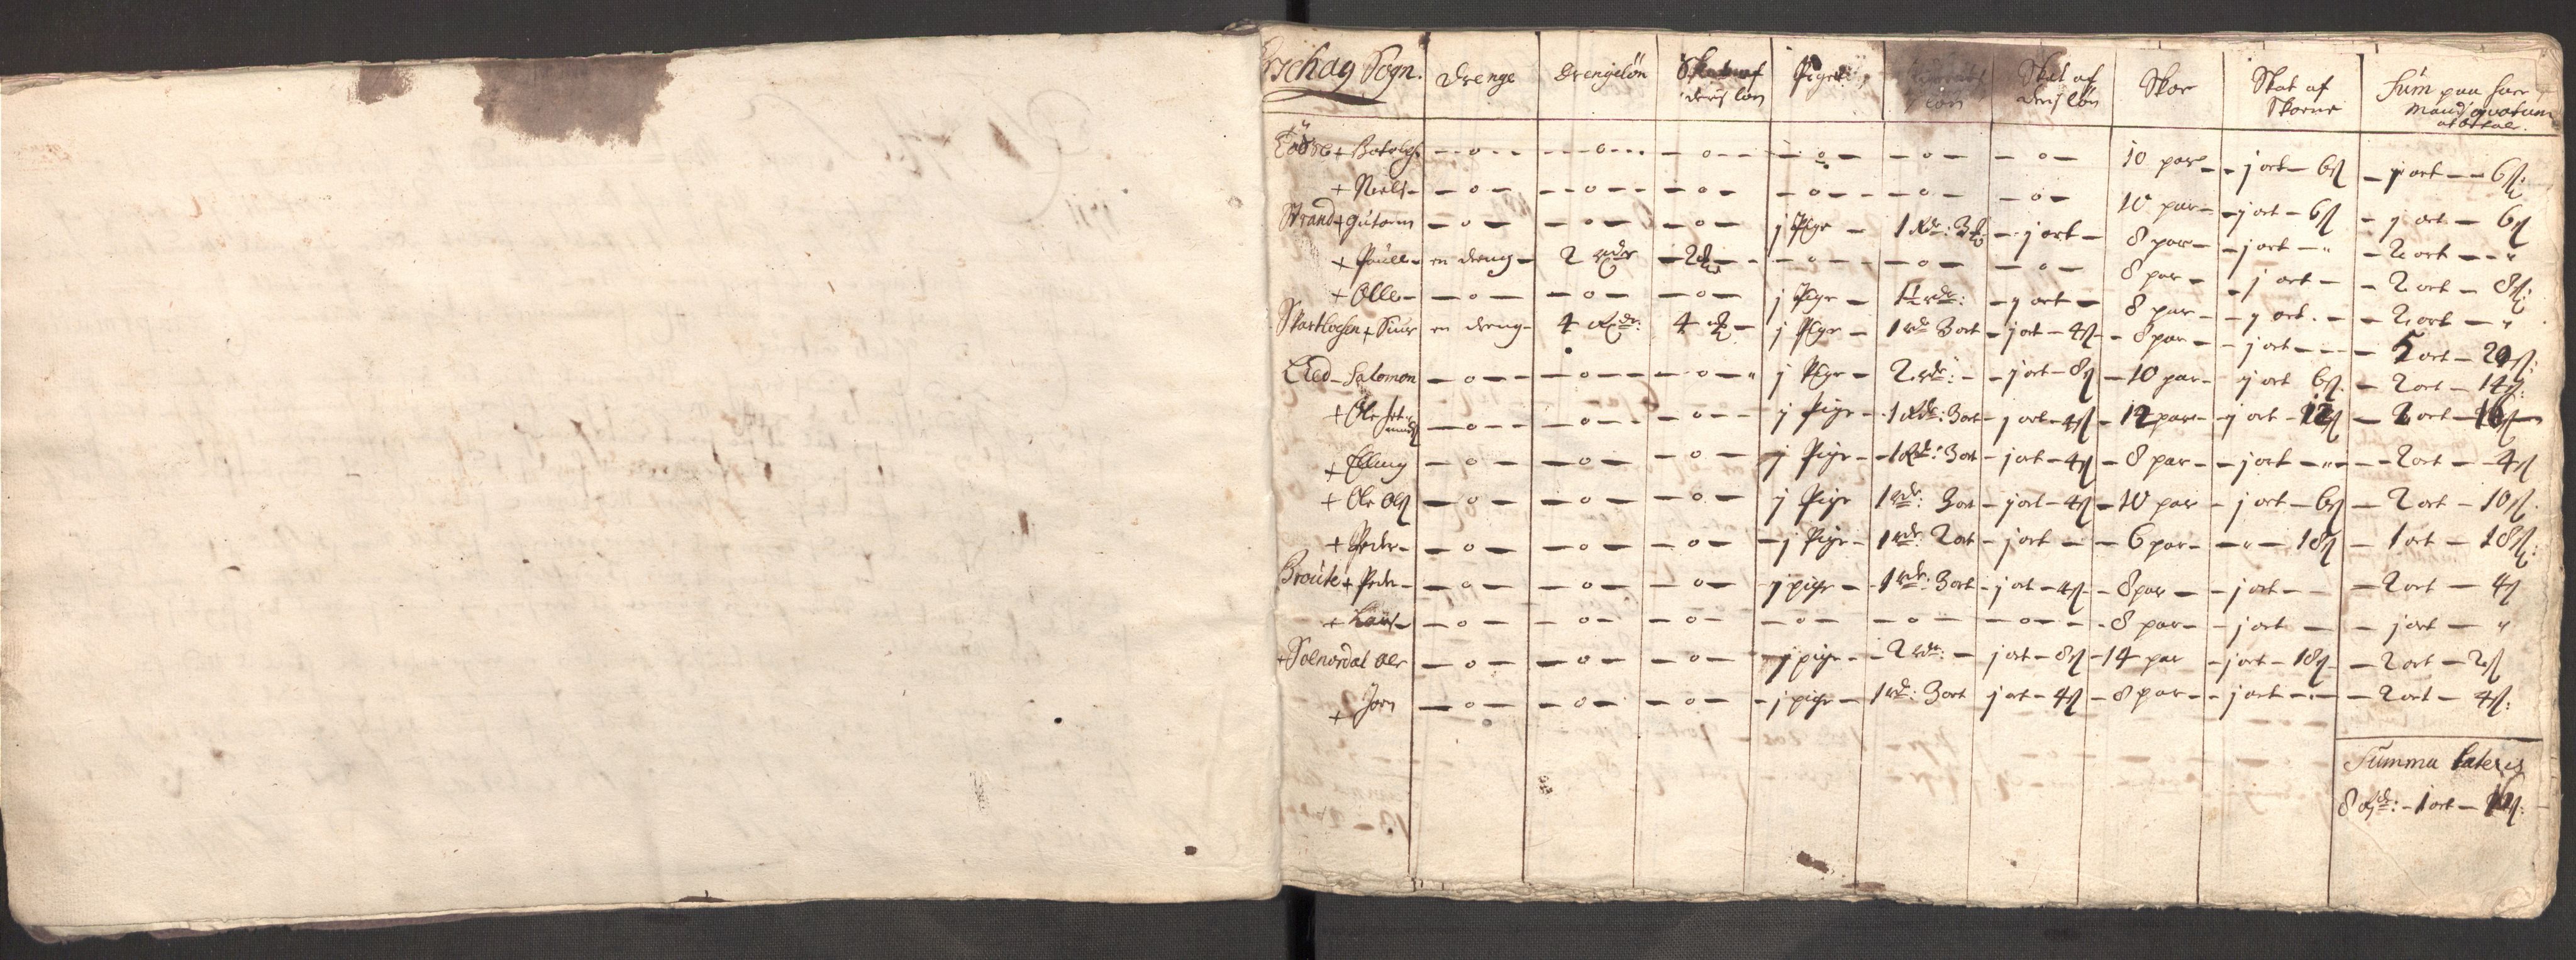 Sogn. drenge drengeløn Skat af deris løn Piger løn Skat af deris løn Skoe Skat af Skoene Sum paa huer Mand
+ - o - - o - - o - - o - - o - - o - 10 par - j ort - 6 ß - j ort - 6 ß
+ Niels - - o - - o - - o - - o - - o - - o - 10 par - j ort - 6 ß - j ort - 6 ß
Strand + gutorm - o - - o - - o - j Pige - 1 Rdr: 3 - j ort - 8 par - j ort - " - 2 ort - "
+ Poulle - en dreng - 2 rdr - 2 - - o - - o - - o - 8 par - j ort - - 2 ort - 8 ß
+ Olle - - o - - o - - o - j Pige - 1½ rdr: - j ort - 8 par - j ort - - 2 ort - "
+ Siur en dreng - 4 Rdr: 4 - j Pige - 1 rdr 3 ort - j ort - 4 ß - 8 par - j ort - - 5 ort - 20 ß:
Lied - Salomon - o - - o - - o - " j Pige - 2 rdr: - j ort - 8 ß - 10 par - j ort 6 ß - 2 ort - 14 ß:
+ Ole - o - - o - - o - j Pige - 1 Rdr: 3 ort - j ort - 4 ß - 12 par - j ort - 12 ß - 2 ort - 16 ß
+ Elling - o - - o - - o - j Pige - 1 Rdr: 3 ort - j ort - 4 ß - 8 par - j ort - " - 2 ort - 4 ß
+ Ole Olß - o - - o - - o - j Pige 1 rdr: 3 ort - j ort - 4 ß - 10 par - j ort - 6 ß - 2 ort - 10 ß
+ Peder - - o - - o - - o - j Pige - 1 rdr: 2 ort - j ort - - 6 par - - " - 18 ß - 1 ort - 18 ß:
Broute + Peder - - o - - o - - o - j pige - 1 rdr: 3 ort - j ort - 4 ß - 8 par - j ort - - 2 ort - 4 ß
+ Lars - - o - - o - - o - - o - - o - - o - - 8 par - - j ort - - j ort - "
+ Solnordal Ole - o - - o - - o - j pige - 2 rdr: - j ort - 8 ß - 14 par - j ort - 18 ß - 2 ort - 2 ß
+ Jorn - o - - o - - o - j pige - 1 rdr: 3 ort j ort - 4 ß - 8 par - - j ort - - 2 ort - 4 ß:
Summa lateris
8 Rdr: - 1 ort - ß: